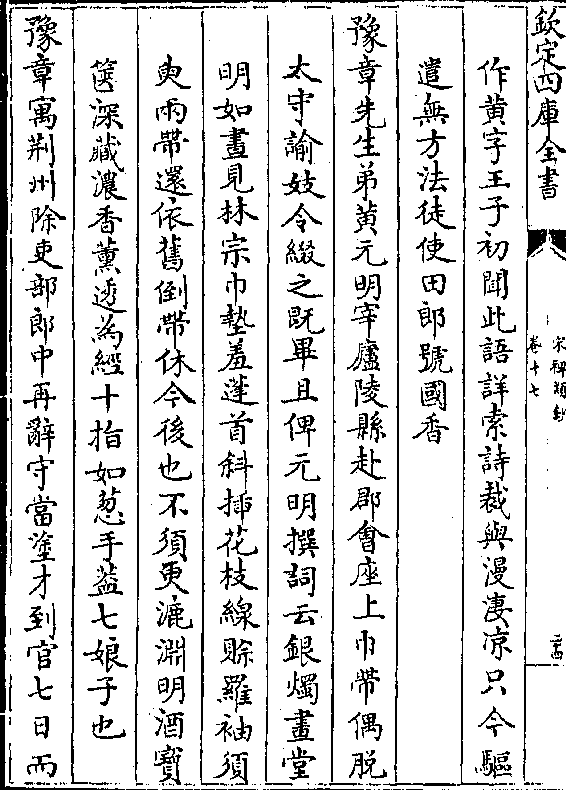 欽定四庫全書
宋稗類鈔
卷十七
作黄字王子初聞此語詳索詩裁與漫淒凉只今驅
遣無方法徒使田郎號國香
豫章先生弟黄元明宰廬陵縣赴郡會座上巾帶偶脱
太守諭妓令綴之既畢且俾元明撰詞云銀燭畫堂
明如晝見林宗巾墊羞蓬首斜插花枝線賖羅袖須
臾兩帶還依舊倒帶休今後也不須更漉淵明酒寳
篋深藏濃香薰透為經十指如葱手葢七娘子也
豫章寓荆州除吏部郎中再辭守當塗才到官七日而